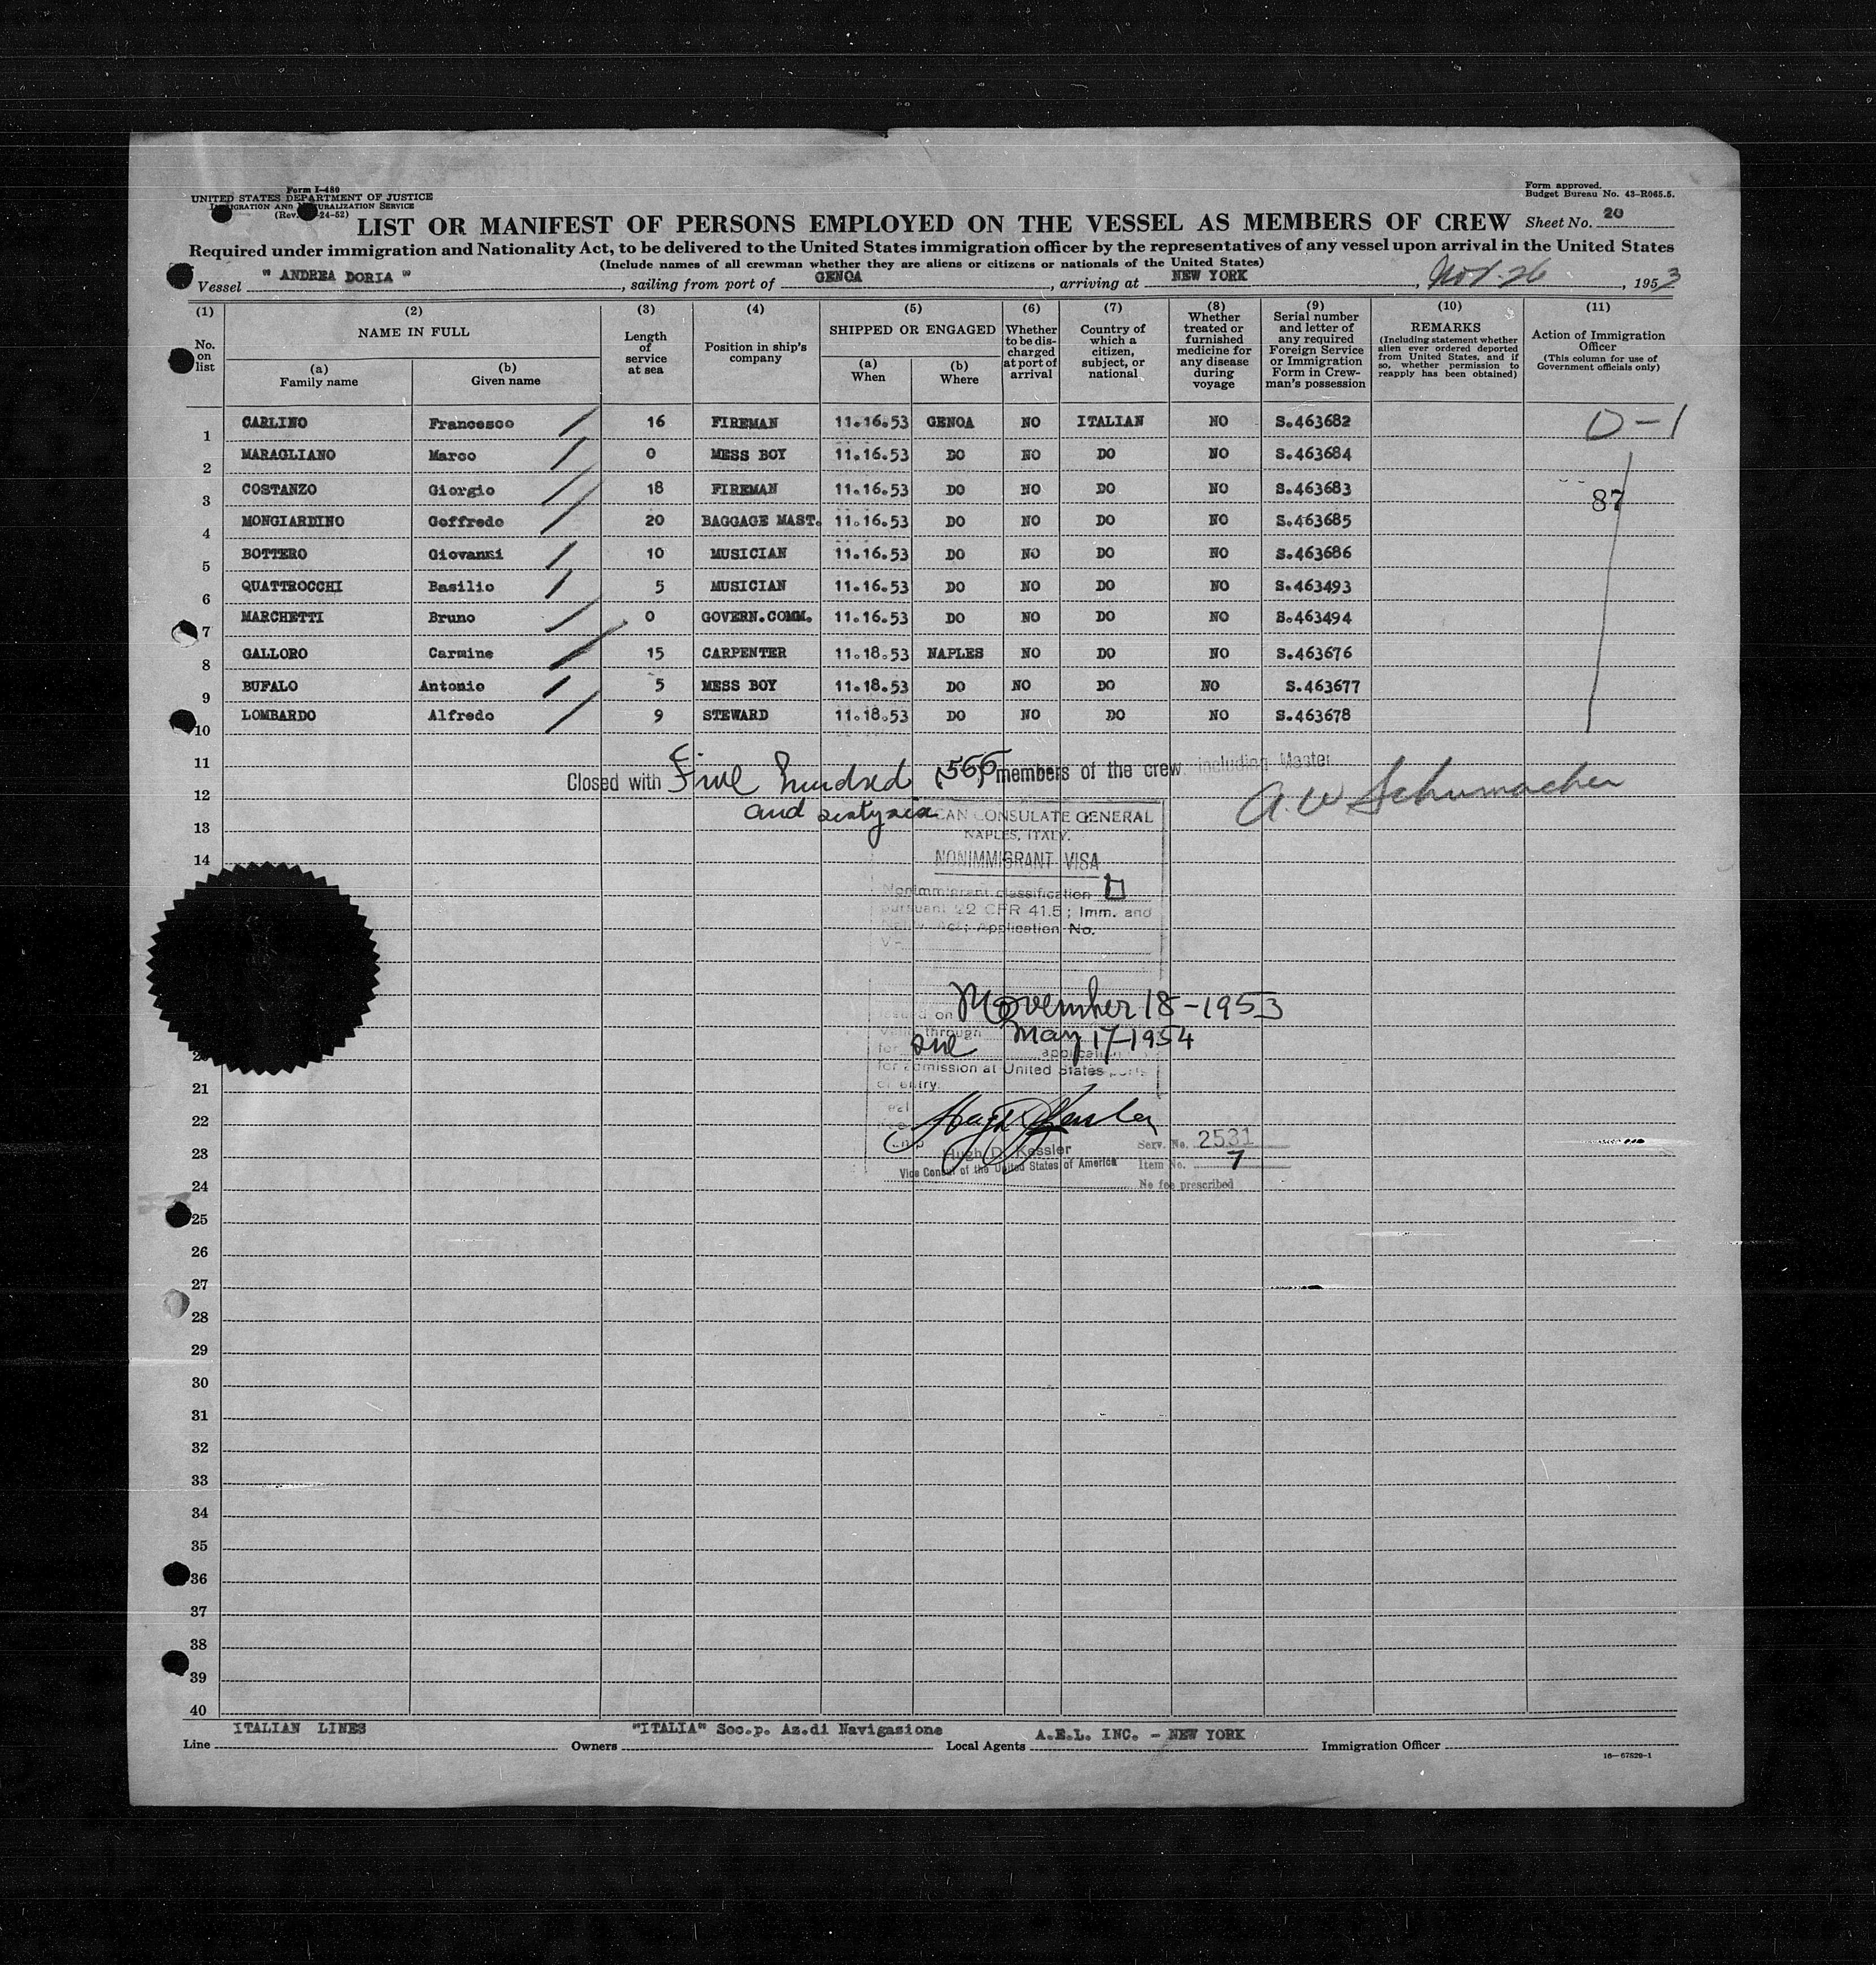 Form I-480
UNITED STATES DEPARTMENT OF JUSTICE
IMMIGRATION AND NATURALIZATION SERVICE
(Rev. -24-52)
Form approved.
Budget Bureau No. 43-R065.5.
LIST OR MANIFEST OF PERSONS EMPLOYED ON THE VESSEL AS MEMBERS OF CREW Sheet No. 20
Required under immigration and Nationality Act, to be delivered to the United States immigration officer by the representatives of any vessel upon arrival in the United States
(Include names of all crewman whether they are aliens or citizens or nationals of the United States)
Vessel " ANDREA DORIA ", sailing from port of GENOA, arriving at NEW YORK, Nov. 26, 1953
(1) No. on list
(2) NAME IN FULL
(a) Family name
(b) Given name
(3) Length of service at sea
(4) Position in ship's company
(5) SHIPPED OR ENGAGED
(a) When
(b) Where
(6) Whether to be discharged at port of arrival
(7) Country of which a citizen, subject, or national
(8) Whether treated or furnished medicine for any disease during voyage
(9) Serial number and letter of any required Foreign Service or Immigration Form in Crewman's possession
(10) REMARKS (Including statement whether alien ever ordered deported from United States, and if so, whether permission to reapply has been obtained)
(11) Action of Immigration Officer (This column for use of Government officials only)
1 CARLINO Francesco 16 FIREMAN 11.16.53 GENOA NO ITALIAN NO S.463682 D-1
2 MARAGLIANO Marco 0 MESS BOY 11.16.53 DO NO DO NO S.463684
3 COSTANZO Giorgio 18 FIREMAN 11.16.53 DO NO DO NO S.463683 87
4 MONGIARDINO Goffredo 20 BAGGAGE MAST. 11.16.53 DO NO DO NO S.463685
5 BOTTERO Giovanni 10 MUSICIAN 11.16.53 DO NO DO NO S.463686
6 QUATTROCCHI Basilio 5 MUSICIAN 11.16.53 DO NO DO NO S.463493
7 MARCHETTI Bruno 0 GOVERN.COMM. 11.16.53 DO NO DO NO S.463494
8 GALLORO Carmine 15 CARPENTER 11.18.53 NAPLES NO DO NO S.463676
9 BUFALO Antonio 5 MESS BOY 11.18.53 DO NO DO NO S.463677
10 LOMBARDO Alfredo 9 STEWARD 11.18.53 DO NO DO NO S.463678
11
Closed with Five hundred (566) members of the crew including Master
12 and sixtysix A.W. Schumacher
CAN CONSULATE GENERAL
13
NAPLES, ITALY.
14
NONIMMIGRANT VISA
Nonimmigrant classification D
pursuant 22 CFR 41.5; Imm. and
Natly. Act; Application No.
V-
Issued on November 18-1953
Valid through May 17-1954
for one application
for admission at United States ports
of entry.
21
22
Hugh D. Kessler
23
Hugh D. Kessler
Vice Consul of the United States of America
Serv. No. 2531
Item No. 7
No fee prescribed
24
25
26
27
28
29
30
31
32
33
34
35
36
37
38
39
40
Line ITALIAN LINES Owners "ITALIA" Soc.p. Az.di Navigazione Local Agents A.E.L. INC. - NEW YORK Immigration Officer
16—67829-1